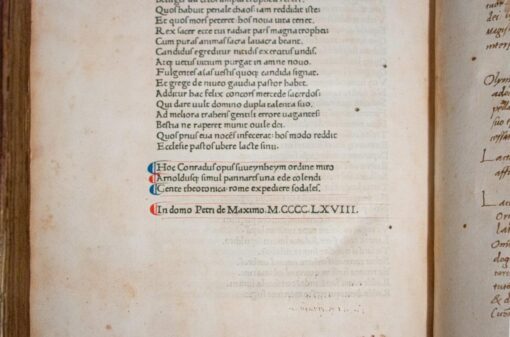 Quos habuit penale chaos iam reddidit iste:
Et quos mors peteret hos noua uita tenet.
Rex sacer ecce tui radiat pars magna trophei
Cum puras animas sacra lauacra beant.
Candidus egreditur nitidis exercitus undis.
Atq; uetus uitium purgat in amne nouo.
Fulgentes aīas uestis quoq; candida signat.
Et grege de niueo gaudia pastor habet.
Additur hac felix concors mercede sacerdos:
Qui dare uult domino dupla talenta suo.
Ad meliora trahens gentili errore uagantes
Bestia ne raperet munit ouile dei.
Quos prius eua nocēs infecerat: hos modo reddit
Ecclesie pastos ubere lacte sinu.
Hoc Conradus opus suueynheym ordine miro
Arnoldusq; simul pannarts una ede colendi
Gente theotonica: rome expediere sodales.
In domo Petri de Maximo. M.CCCC.LXVIII.